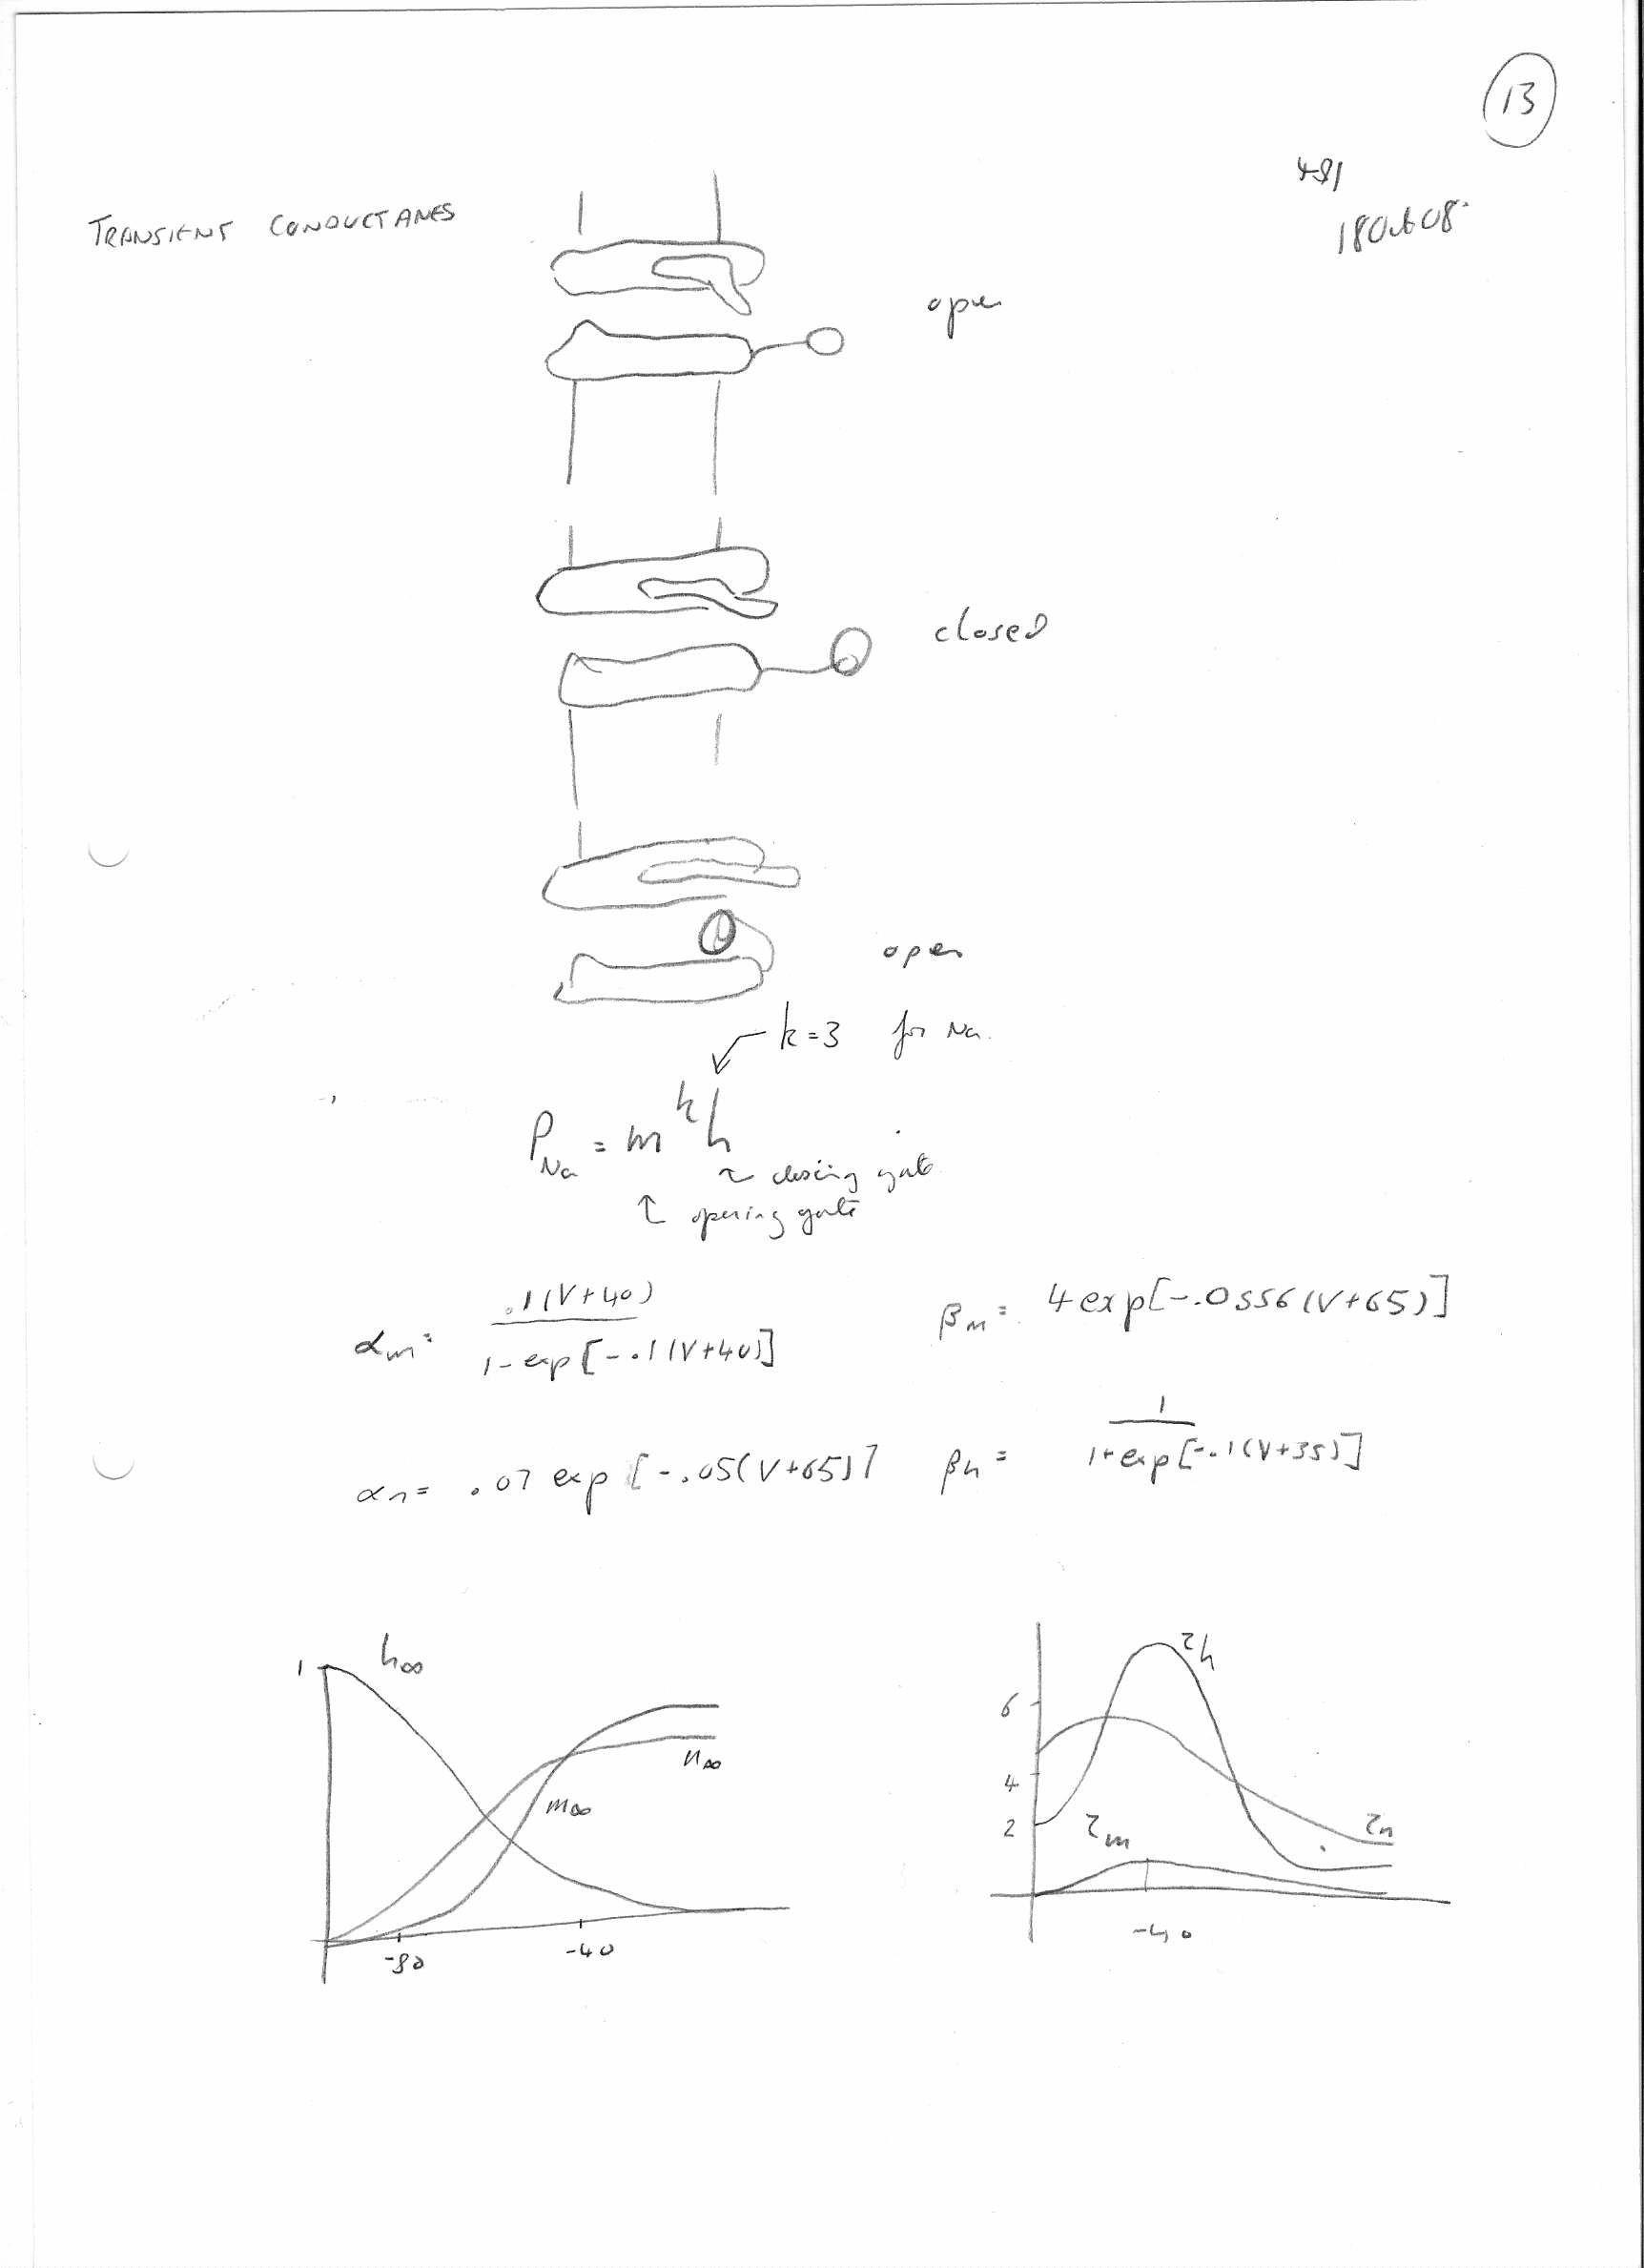 13
TRANSIENT CONDUCTANES
18 Oct 08
open
closed
open
k=3 for Na.
P_Na = m^k h
closing gate
opening gate
α_m = .1(V+40) / 1-exp[-.1(V+40)]
β_m = 4exp[-.0556(V+65)]
α_n = .07 exp[-.05(V+65)]
β_h = 1 / 1+exp[-.1(V+35)]
1
h∞
n∞
m∞
-80
-40
τh
6
4
2
τm
τn
-40